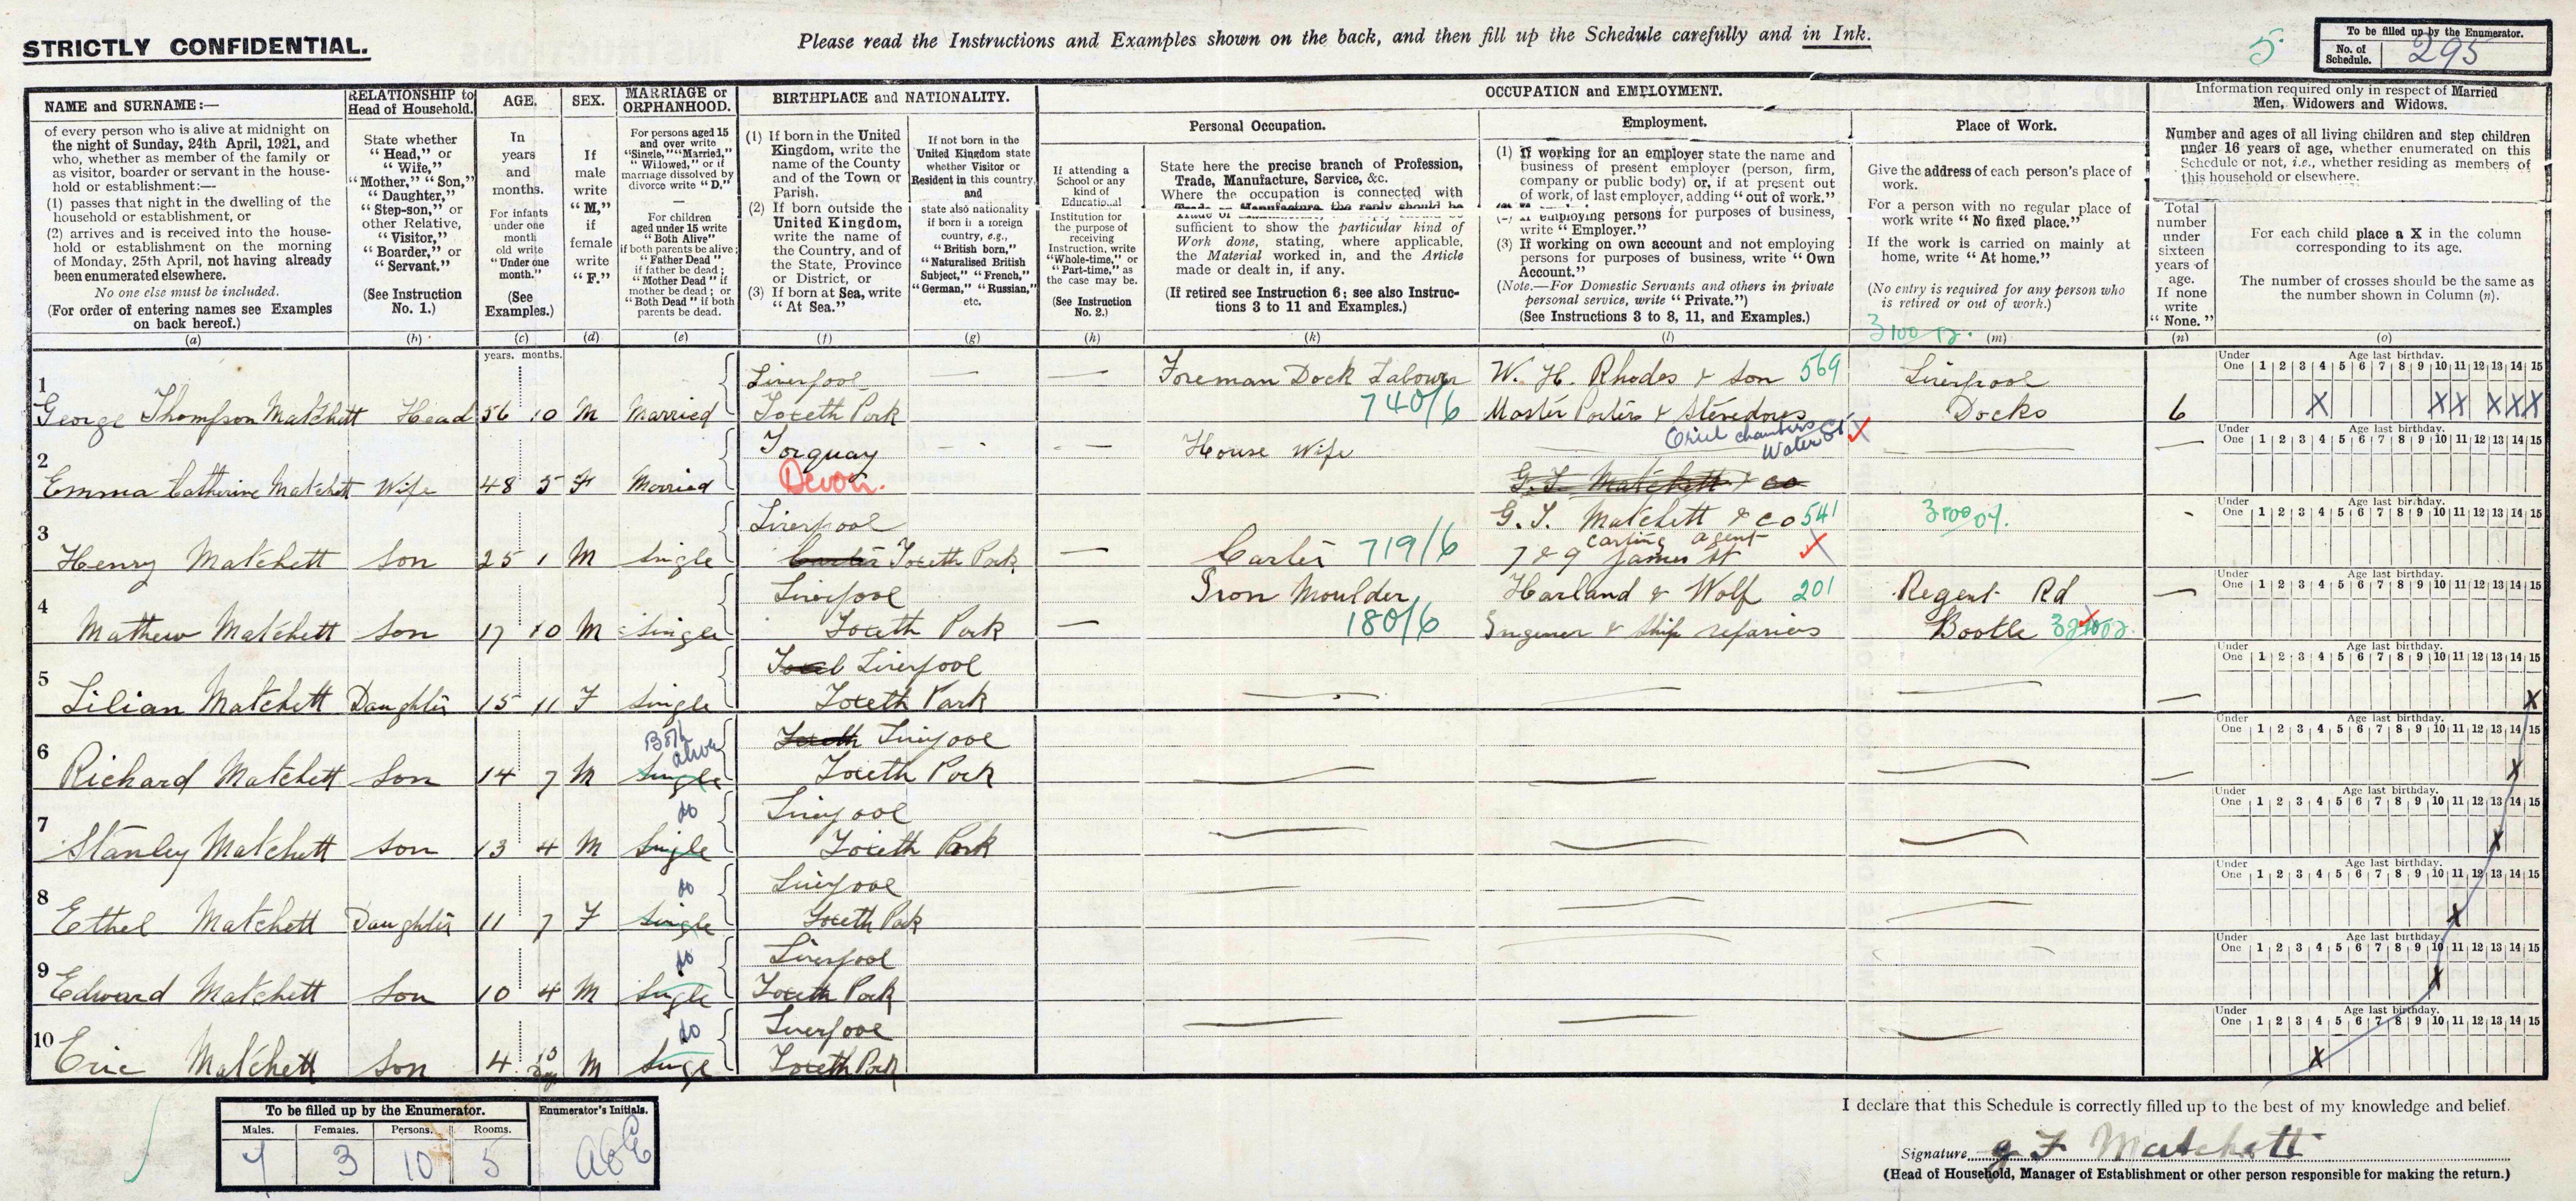 STRICTLY CONFIDENTIAL.
Please read the Instructions and Examples shown on the back, and then fill up the Schedule carefully and in Ink.
5
To be filled up by the Enumerator.
No. of Schedule. 295
NAME and SURNAME:—
of every person who is alive at midnight on
the night of Sunday, 24th April, 1921, and
who, whether as member of the family or
as visitor, boarder or servant in the house-
hold or establishment:—
(1) passes that night in the dwelling of the
household or establishment, or
(2) arrives and is received into the house-
hold or establishment on the morning
of Monday, 25th April, not having already
been enumerated elsewhere.
No one else must be included.
(For order of entering names see Examples
on back hereof.)
(a)
RELATIONSHIP to
Head of Household.
State whether
"Head," or
"Wife,"
"Mother," "Son,"
"Daughter,"
"Step-son," or
other Relative,
"Visitor,"
"Boarder," or
"Servant."
(See Instruction
No. 1.)
(b)
AGE.
In
years
and
months.
For infants
under one
month
old write
"Under one
month."
(See
Examples.)
(c)
SEX.
If
male
write
"M,"
if
female
write
"F."
(d)
MARRIAGE or
ORPHANHOOD.
For persons aged 15
and over write
"Single," "Married,"
"Widowed," or if
marriage dissolved by
divorce write "D."
—
For children
aged under 15 write
"Both Alive"
if both parents be alive;
"Father Dead"
if father be dead;
"Mother Dead" if
mother be dead; or
"Both Dead" if both
parents be dead.
(e)
BIRTHPLACE and NATIONALITY.
(1) If born in the United
Kingdom, write the
name of the County
and of the Town or
Parish.
(2) If born outside the
United Kingdom,
write the name of
the Country, and of
the State, Province
or District, or
(3) If born at Sea, write
"At Sea."
(f)
If not born in the
United Kingdom state
whether Visitor or
Resident in this country,
and
state also nationality
if born in a foreign
country, e.g.,
"British born,"
"Naturalised British
Subject," "French,"
"German," "Russian,"
etc.
(g)
OCCUPATION and EMPLOYMENT.
If attending a
School or any
kind of
Educational
Institution for
the purpose of
receiving
Instruction, write
"Whole-time," or
"Part-time," as
the case may be.
(See Instruction
No. 2.)
(h)
Personal Occupation.
State here the precise branch of Profession,
Trade, Manufacture, Service, &c.
Where the occupation is connected with
Trade or Manufacture the reply should be
sufficient to show the particular kind of
Work done, stating, where applicable,
the Material worked in, and the Article
made or dealt in, if any.
(If retired see Instruction 6; see also Instruc-
tions 3 to 11 and Examples.)
(k)
Employment.
(1) If working for an employer state the name and
business of present employer (person, firm,
company or public body) or, if at present out
of work, of last employer, adding "out of work."
employing persons for purposes of business,
write "Employer."
(3) If working on own account and not employing
persons for purposes of business, write "Own
Account."
(Note.—For Domestic Servants and others in private
personal service, write "Private.")
(See Instructions 3 to 8, 11, and Examples.)
(l)
Place of Work.
Give the address of each person's place of
work.
For a person with no regular place of
work write "No fixed place."
If the work is carried on mainly at
home, write "At home."
(No entry is required for any person who
is retired or out of work.)
(m)
Information required only in respect of Married
Men, Widowers and Widows.
Number and ages of all living children and step children
under 16 years of age, whether enumerated on this
Schedule or not, i.e., whether residing as members of
this household or elsewhere.
Total
number
under
sixteen
years of
age.
If none
write
"None."
(n)
For each child place a X in the column
corresponding to its age.
The number of crosses should be the same as
the number shown in Column (n).
(o)
years. months.
Under One Age last birthday. 1 2 3 4 5 6 7 8 9 10 11 12 13 14 15
1 George Thompson Matchett Head 56 10 M Married Liverpool Toxeth Park — — Foreman Dock Labourer 740/6 W. H. Rhodes & Son 569 Master Porters & Stevedores Oriel Chambers Water St Liverpool Docks 6 X XX XXX
Under One Age last birthday. 1 2 3 4 5 6 7 8 9 10 11 12 13 14 15
2 Emma Catherine Matchett Wife 48 5 F Married Torquay Devon. — — House Wife G.T. Matchett & Co —
Under One Age last birthday. 1 2 3 4 5 6 7 8 9 10 11 12 13 14 15
3 Henry Matchett Son 25 1 M Single Liverpool Carter Toxeth Park — Carter 719/6 G. T. Matchett & Co 541 carting agent 7 & 9 James St
Under One Age last birthday. 1 2 3 4 5 6 7 8 9 10 11 12 13 14 15
4 Mathew Matchett Son 17 10 M Single Liverpool Toxeth Park — Iron Moulder 180/6 Harland & Wolf 201 Engineer & Ship repariers Regent Rd Bootle —
Under One Age last birthday. 1 2 3 4 5 6 7 8 9 10 11 12 13 14 15
5 Lilian Matchett Daughter 15 11 F Single Liverpool Toxeth Park — — — — X
Under One Age last birthday. 1 2 3 4 5 6 7 8 9 10 11 12 13 14 15
6 Richard Matchett Son 14 7 M Single Both alive Toxeth Liverpool Toxeth Park — — — — X
Under One Age last birthday. 1 2 3 4 5 6 7 8 9 10 11 12 13 14 15
7 Stanley Matchett Son 13 4 M Single do Liverpool Toxeth Park — — — X
Under One Age last birthday. 1 2 3 4 5 6 7 8 9 10 11 12 13 14 15
8 Ethel Matchett Daughter 11 7 F Single do Liverpool Toxeth Park — — — X
Under One Age last birthday. 1 2 3 4 5 6 7 8 9 10 11 12 13 14 15
9 Edward Matchett Son 10 4 M Single do Liverpool Toxeth Park — — — X
Under One Age last birthday. 1 2 3 4 5 6 7 8 9 10 11 12 13 14 15
10 Eric Matchett Son 4 M Single do Liverpool Toxeth Park — — — X
To be filled up by the Enumerator.
Males. Females. Persons. Rooms.
7 3 10 5
Enumerator's Initials.
I declare that this Schedule is correctly filled up to the best of my knowledge and belief.
Signature G T Matchett
(Head of Household, Manager of Establishment or other person responsible for making the return.)